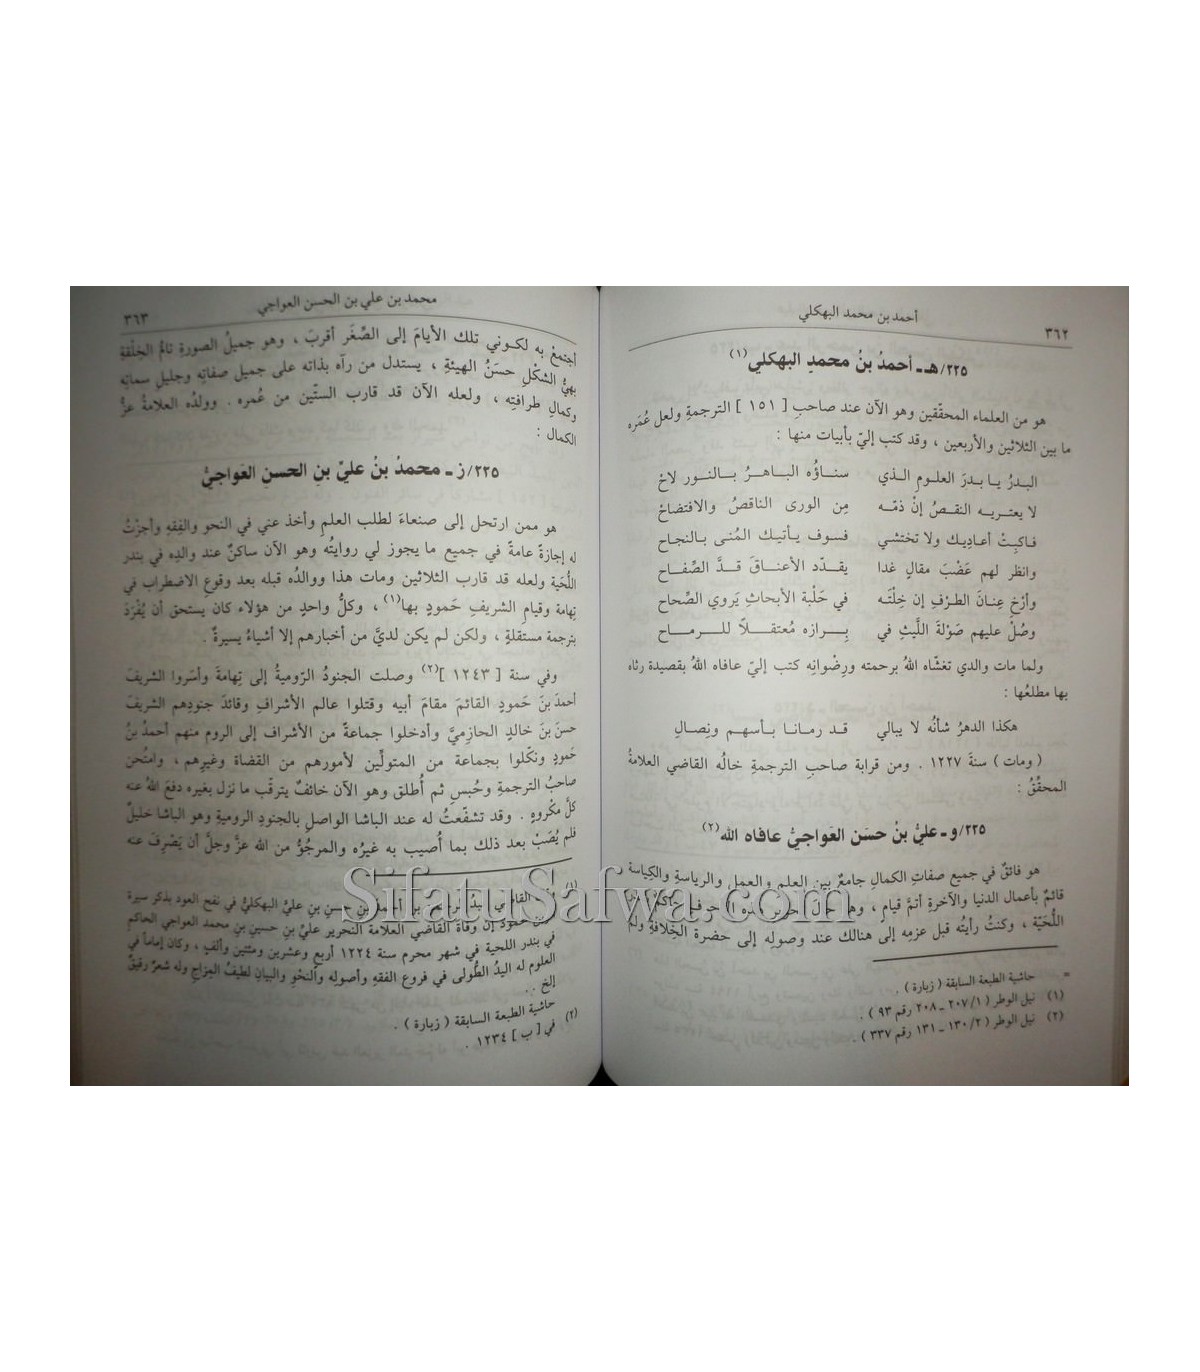 أحمد بن محمد البهكلي
٣٦٢
٢٢٥/هـ ـ أحمدُ بنُ محمدِ البهكلي(١)
هو من العلماء المحقّقين وهو الآن عند صاحبِ [ ١٥١ ] الترجمةِ ولعل عُمَره
ما بين الثلاثين والأربعين ، وقد كتب إليّ بأبيات منها :
البدرُ يا بدرَ العلومِ الذي سناؤُه الباهرُ بالنور لاحْ
لا يعتريه النقصُ إنْ ذمّه مِن الورى الناقصُ والافتضاحْ
فاكبِتْ أعادِيك ولا تختشي فسوف يأتيك المُنى بالنجاح
وانظر لهم عَضْبَ مقالٍ غدا يقدّد الأعناقَ قدَّ الصِّفاح
وأرْخِ عِنانَ الطرْفِ إن خِلْتَه في حَلْبة الأبحاثِ يَروي الصِّحاح
وصُلْ عليهم صَوْلةَ اللَّيثِ في بِرازِه مُعتقلاً للرماح
ولما مات والدي تغشّاه اللهُ برحمته ورِضْوانِه كتب إليّ عافاه اللهُ بقصيدة رثاه
بها مطلعُها :
هكذا الدهرُ شأنُه لا يبالي قد رمانا بأسهم ونِصالِ
( ومات ) سنةَ ١٢٢٧ . ومن قرابة صاحبِ الترجمةِ خالُه القاضي العلامةُ
المحقّقُ :
٢٢٥/و ـ عليُّ بنُ حسَن العَواجيُّ عافاه الله(٢)
هو فائقٌ في جميع صفاتِ الكمالِ جامعٌ بين العلم والعملِ والرياسةِ والكِياسة
قائمٌ بأعمال الدنيا والآخرةِ أتمَّ قيام ، وهو حالَ تحريرِ هذه الأحرفِ حاكمٌ في
اللُّحَيّة ، وكنتُ رأيتُه قبل عزمِه إلى هنالك عند وصولِه إلى حضرة الخِلافةِ ولم
= حاشية الطبعة السابقة ( زبارة ) .
(١) نيل الوطر ( ١/ ٢٠٧ ـ ٢٠٨ رقم ٩٣ ) .
(٢) نيل الوطر ( ٢/ ١٣٠ ـ ١٣١ رقم ٣٣٧ ) .
محمد بن علي بن الحسن العواجي
٣٦٣
أجتمعْ به لكوني تلك الأيامَ إلى الصِّغَر أقربَ ، وهو جميلُ الصورةِ تامُّ الخِلْقةِ
بهيُّ الشكْلِ حسَنُ الهيئةِ ، يستدل من رآه بذاته على جميل صفاتِه وجليلِ سماتِه
وكمالِ طرافتِه ، ولعله الآن قد قارب الستّين من عُمره . وولدُه العلامةُ عزُّ
الكمال :
٢٢٥/ز ـ محمدُ بنُ عليِّ بنِ الحسنِ العَواجيُّ
هو ممن ارتحل إلى صنعاءَ لطلب العلمِ وأخذ عني في النحو والفِقهِ وأجزْتُ
له إجازةً عامةً في جميع ما يجوز لي روايتُه وهو الآن ساكنٌ عند والدِه في بندر
اللُّحَية ولعله قد قارب الثلاثين ومات هذا ووالدُه قبله بعد وقوعِ الاضطراب في
تِهامة وقيامِ الشريفِ حَمودٍ بها(١) ، وكلُّ واحدٍ من هؤلاء كان يستحق أن يُفْرَدَ
بترجمة مستقلةٍ ، ولكن لم يكن لديَّ من أخبارهم إلا أشياءُ يسيرةٌ .
وفي سنة [ ١٢٤٣ ](٢) وصلت الجنودُ الرّوميةُ إلى تِهامةَ وأسَروا الشريفَ
أحمدَ بنَ حَمودٍ القائمَ مقامَ أبيه وقتلوا عالم الأشرافِ وقائدَ جنودِهم الشريفَ
حسنَ بنَ خالدٍ الحازِميَّ وأدخلوا جماعةً من الأشراف إلى الروم منهم أحمدُ بنُ
حَمودٍ ونكّلوا بجماعة من المتولِّين لأمورهم من القضاة وغيرِهم ، وامتُحن
صاحبُ الترجمةِ وحُبسِ ثم أُطلق وهو الآن خائفٌ يترقّب ما نزل بغيره دفعَ اللهُ عنه
كلَّ مكْروهٍ . وقد تشفّعتُ له عند الباشا الواصلِ بالجنودِ الروميةِ وهو الباشا خليلٌ
فلم يُصَبْ بعد ذلك بما أُصيب به غيرُه والمرجُوُّ من الله عزَّ وجلَّ أن يَصْرِفَ عنه
(١) القاضي عبدُ الرحمنِ بنِ أحمدَ بنِ حسنِ بنِ عليٍّ البهكليُّ في نفح العود بذكر سيرة
حمود إن وفاة القاضي العلامة النحرير عليّ بنِ حسينِ بنِ محمد العواجي الحاكم
في بندر اللحية في شهر محرم سنة ١٢٢٤ أربع وعشرين ومئتين وألف ، وكان إماماً في
العلوم له اليدُ الطُّولى في فروع الفقهِ وأصولِه والنحْوِ والبيانِ لطيفُ المِزاجِ وله شعرٌ رقيقٌ
إلخ . .
حاشية الطبعة السابقة ( زبارة ) .
(٢) في [ ب ] ١٢٣٤ .
SifatuSafwa.com